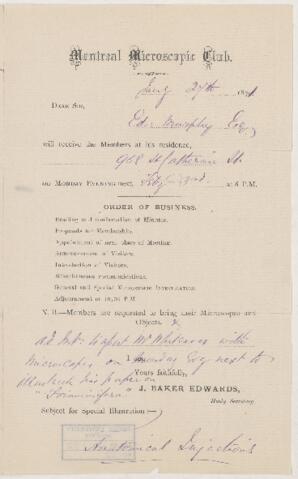 Montreal Microscopic Club.
Jany 27th 187
DEAR SIR,
Edw. Murphy Esq
will receive the Members at his residence,
St Catherine St.
on MONDAY EVENING next, at 8 P.M.
ORDER OF BUSINESS.
Reading and confirmation of Minutes.
Proposals for Membership.
Appointment of next place of Meeting.
Announcement of Visitors.
Introduction of Visitors.
Miscellaneous communications.
General and Special Microscopic INVESTIGATION.
Adjournment at 10,30 P.M.
N. B.—Members are requested to bring their Microscopes and
Objects.
to assist Mr Whiteaves with
microscopes on Monday Evg next to
illustrate his paper on
"Foraminifera"
Yours faithfully,
J. BAKER EDWARDS,
Hon'y Secretary.
Subject for Special Illustration:—
Anatomical Injections